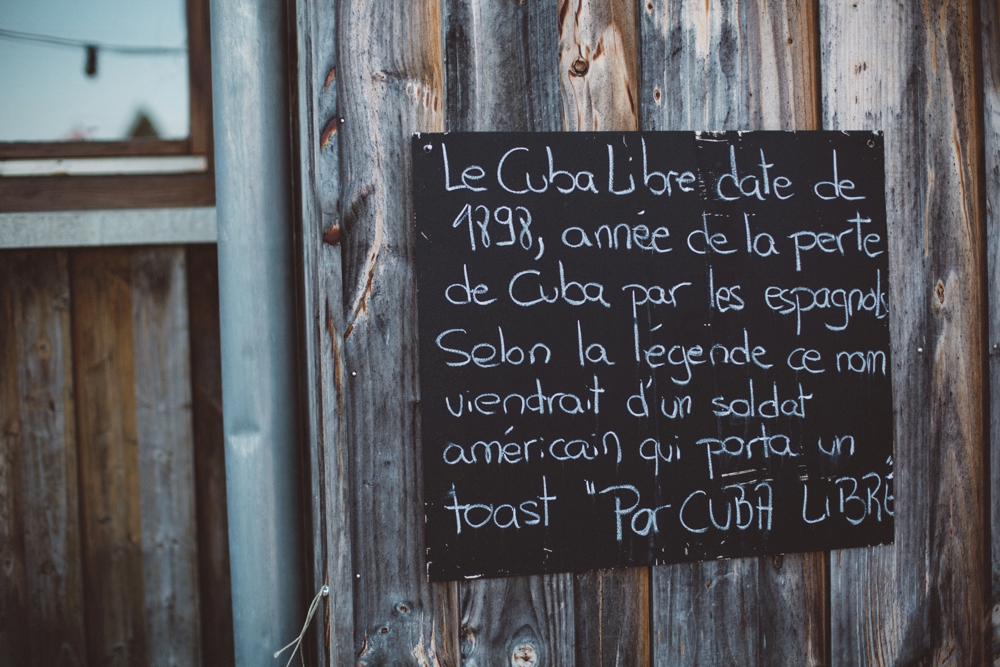 Le Cuba Libre date de
1898, année de la perte
de Cuba par les espagnols
Selon la légende ce nom
viendrait d'un soldat
américain qui porta un
toast "Por CUBA LIBRE